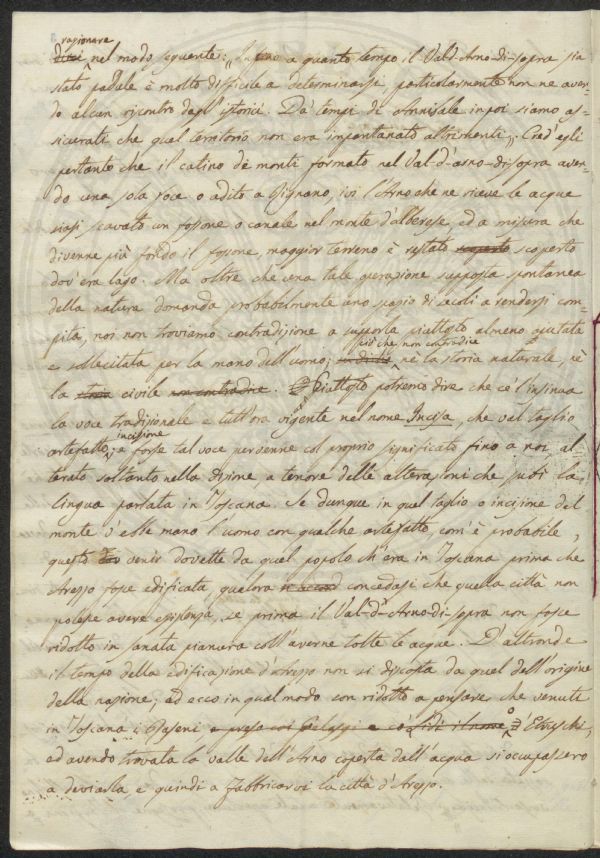 ragionare
nel modo seguente: „ Infino a quanto tempo il Val-d'Arno-di-sopra sia
stato palude è molto difficile a determinarsi, particolarmente non ne aven-
do alcun riscontro dagl'istorici. Da' tempi di Annibale in poi siamo as-
sicurati che quel territorio non era impantanato altrimenti „. Cred'egli
pertanto che il catino de' monti formato nel Val-d'arno-di-sopra aven-
do una sola foce o adito a Rignano, ivi l'Arno che ne riceve le acque
siasi scavato un fossone o canale nel monte d'alberese, ed a misura che
divenne più fondo il fossone, maggior terreno è restato scoperto
dov'era lago. Ma oltre che una tale operazione supposta spontanea
della natura domanda probabilmente uno spazio di secoli a rendersi com-
pita, noi non troviamo contradizione a supporla piuttosto almeno ajutata
più che non contradice
e sollecitata per la mano dell'uomo; nè la storia naturale, nè
la storia civile non contradice. Piuttosto potremo dire che ce l'insinua
la voce tradizionale e tutt'ora vigente nel nome Incisa, che val taglio
incisione
artefatto; e forse tal voce pervenne col proprio significato fino a noi al
terato soltanto nella dizione, a tenore delle alterazioni che subì la
lingua parlata in Toscana. Se dunque in quel taglio o incisione del
monte v'ebbe mano l'uomo con qualche artefatto com'è probabile,
questo venir dovette da quel popolo ch'era in Toscana prima che
Arezzo fosse edificata, qualora concedasi che quella città non
potesse avere esistenza, se prima il Val-d'Arno-di-sopra non fosse
ridotto in sanata pianura coll'averne tolte le acque. D'altronde
il tempo della edificazione d'Arezzo non si discosta da quel dell'origine
della nazione; ed ecco in qual modo son ridotto a pensare che venuti
in Toscana i Raseni e preso coi Pelasgi il nome d'Etruschi,
ed avendo trovata la valle dell'Arno coperta dall'acqua si occupassero
a deviarla e quindi a fabbricarvi la città d'Arezzo.